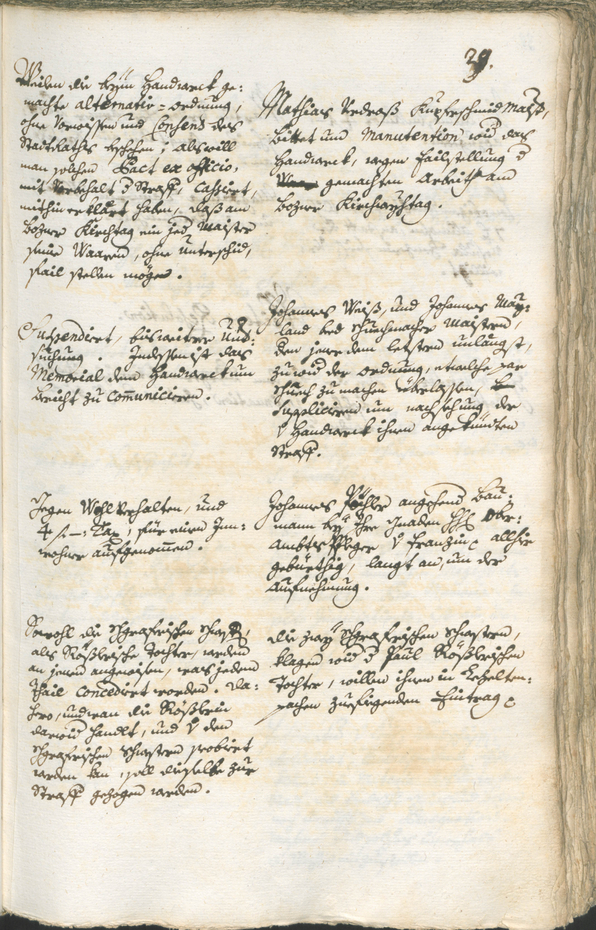 29.
Weilen die beÿm Handwerck ge:
machte alternativ-ordnung,
ohne Vorwissen und Consens des
StadtRaths beschehen; als will
man solchen Pact ex officio,
mit Vorbehalt d Straff, Cassiert,
mithin erklärt haben, daß am
Bozner Kirchtag ein jed Maister
seine Waaren, ohne unterschid,
fail stellen möge.
Mathias Vedraß Kupferschmid Maistr,
bittet um Manutention wid das
Handwerck, wegen failstellung d
gemachten Arbeith am
Bozner Kirchtag.
Suspendirt, bis weitere Unt:
suchung. Indessen ist das
Memorial dem Handwerck um
bericht zu communiciren.
Johannes Weiß, und Johannes Maÿ:
land bed Schuechmacher Maistern,
den jener dem letstern unlängst,
zuwid der ordnung, etwelche par
Schuech zu machen überlassen,
Suppliciren um nachsehung der
v Handwerck ihnen angekündten
Straff.
Gegen Wohlverhalten, und
4 f — Tax, für einen Inn:
wohner aufgenommen.
Johannes angehend Bau:
mann beÿ Ihr Gnaden Ober:
Ambts Pfleger v Franzin allhie
gebürthig, langt an, um die
Aufnehmung.
Sowohl die Schgrafferischen
als Rößlerische Tochter, werden
an jenen angewisen, was jedem
thail concedirt worden. Da:
hero, und wan die Rößlerin
darwid handlt, und v den
Schgrafferischen Schwestern probirt
werden kan, soll dieselbe zur
Straff gezogen werden.
die zwaÿ Schgrafferischen Schwestern,
klagen wid d Paul Rößlerischen
Tochter, willen ihnen in
sachen zuefiegenden Eintrag